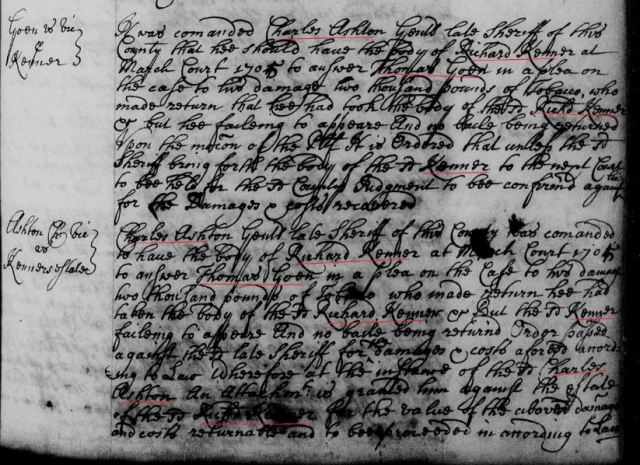 Goen vs vic
Kenner
It was comanded Charles Ashton Gent late Sheriff of this
County that hee should have the body of Richard Kenner at
March Court 1705 to answer Thomas Goen in a plea on
the case to his damage two thousand pounds of tobacco, who
made return that hee had took the body of the sd Richd Kenner
& but hee faileing to appeare And no baile being returned
Upon the motion of the Pltf It is Ordered that unless the sd
Sheriff bring forth the body of the sd Kenner to the next Court
to bee held for the sd County Judgment to bee confirmd against
for the Damages & costs recovered
Ashton vic
vs
Kenners estate
Charles Ashton Gent late Sheriff of this County was comanded
to have the body of Richard Kenner at March Court 1705
to answer Thomas Goen in a plea on the Case to his damage
two thousand pounds of Tobacco who made return hee had
taken the body of the sd Richard Kenner & But the sd Kenner
faileing to appeare And no baile being returnd Order passed
against the sd late Sheriff for the damages & costs afored accord
ing to Law Wherefore at the instance of the sd Charles
Ashton An Attachmt is granted him against the estate
of the sd Richd Kenner for the value of the abovesd damages
and costs returnable and to bee proceeded in according to Law